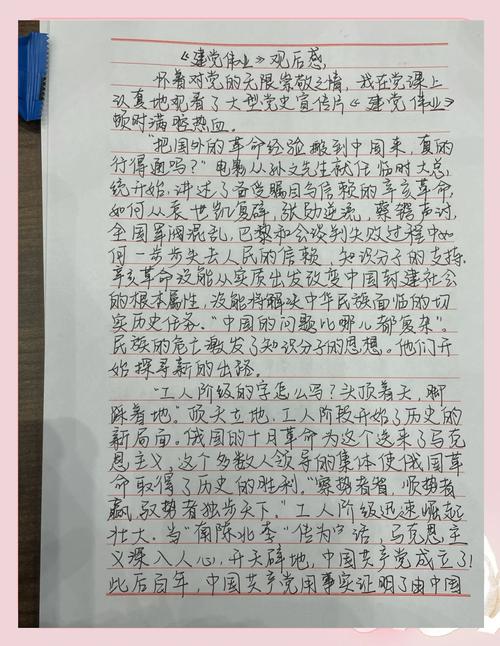 《建党伟业》观后感
怀着对党的无限崇敬之情，我在党课上
认真地观看了大型党史宣传片《建党伟业》
顿时满腔热血。
"把国外的革命经验搬到中国来，真的
行得通吗？"电影从孙文先生就任临时大总
统开始，讲述了备受瞩目与信赖的辛亥革命，
如何从袁世凯复辟，张勋逆流，蔡锷声讨，
全国军阀混乱，巴黎和会谈判失败过程中如
何一步步失去人民的信赖、知识分子的支持。
辛亥革命没能从实质出发改变中国封建社会
的根本属性，没能将解决中华民族面临的切
实历史任务。"中国的问题比哪儿都复杂"。
民族的危亡激发了知识分子的思想。他们开
始探寻新的出路。
"工人阶级的字怎么写？头顶着天，脚
踩着地"。顶天立地，工人阶段开始了历史的
新局面。俄国的十月革命为这个送来了马克
思主义，这个多数人领导的集体使俄国革
命取得了历史的胜利。"察势者智，顺势者
赢，驭势者独步天下。"工人阶级迅速崛起
壮大。当"南陈北李"传为话，马克思主
义深入人心，开天辟地，中国共产党成立了！
此后百年，中国共产党用事实证明了由中国